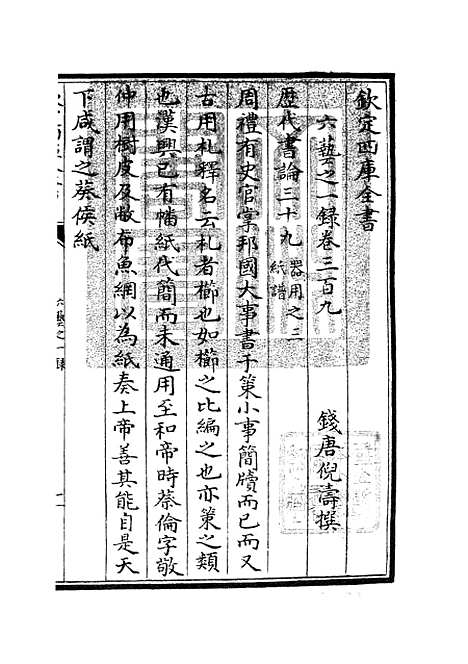 欽定四庫全書
六藝之一録卷三百九
錢唐倪濤撰
歷代書論三十九 器用之三 紙譜
周禮有史官掌邦國大事書于策小事簡牘而已而又
古用札釋名云札者櫛也如櫛之比編之也亦策之類
也漢興已有幡紙代簡而未通用至和帝時蔡倫字敬
仲用樹皮及敝布魚網以為紙奏上帝善其能自是天
下咸謂之蔡侯紙
六藝之一録